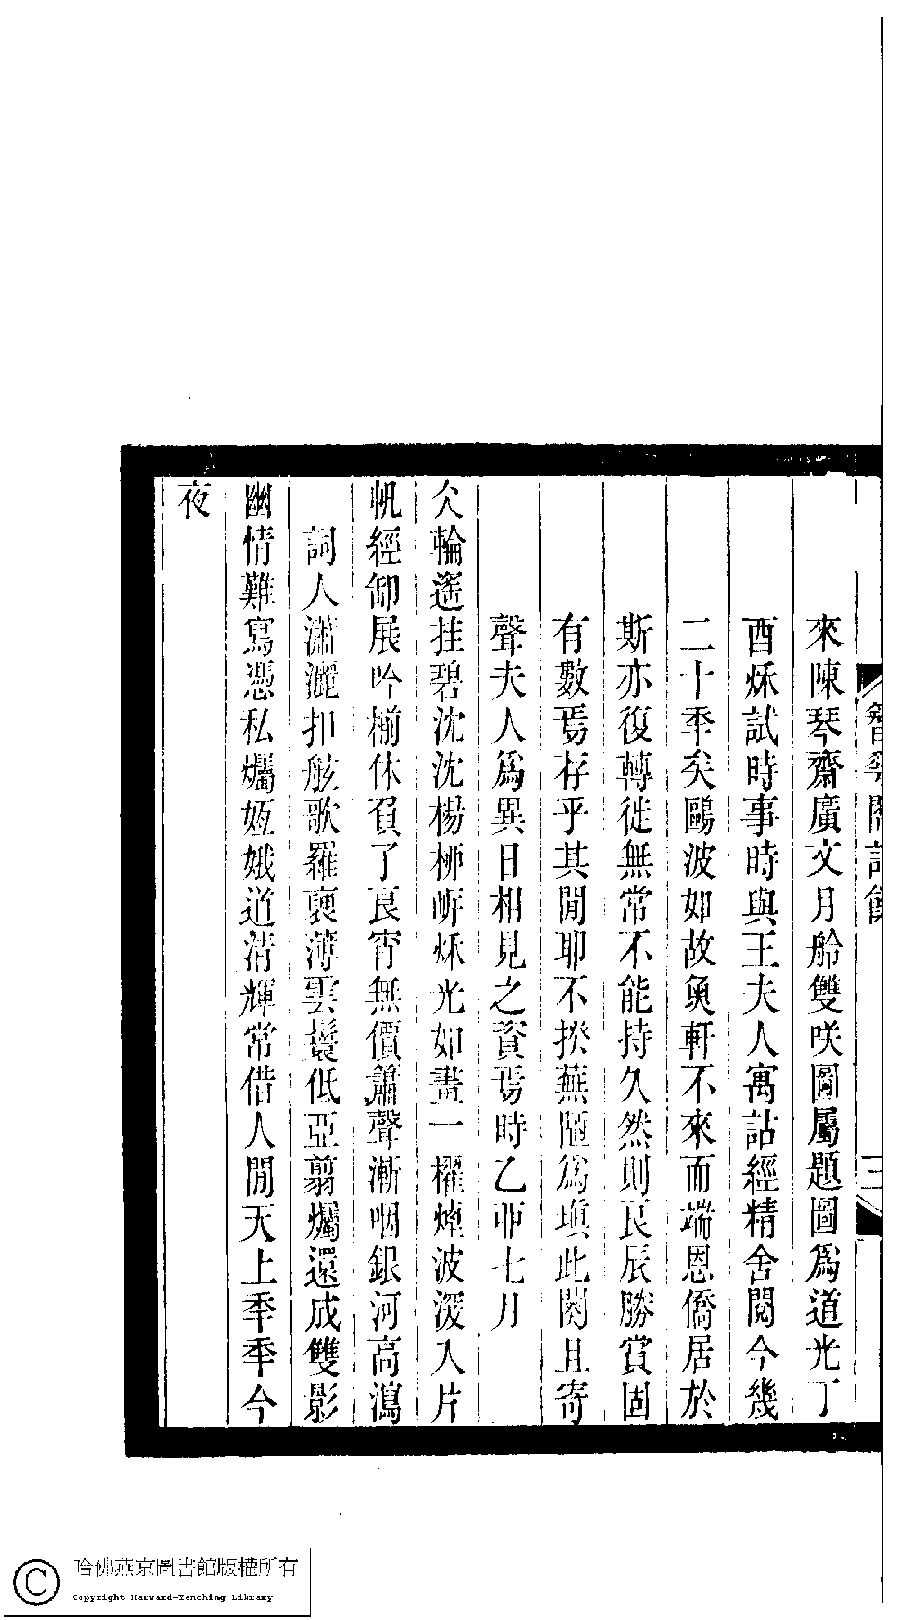 來陳琴齋廣文月舲雙咲圖屬題圖爲道光丁
酉秌試時事時與王夫人寓詁經精舍閱今幾
二十季矣鷗波如故奐軒不來而端恩僑居於
斯亦復轉徙無常不能持久然則良辰勝賞固
有數焉存乎其閒耶不揆蕪陋爲塡此闋且寄
聲夫人爲異日相見之資焉時乙丣七月
仌輪遙挂碧沈沈楊桺岍秌光如畫一櫂煙波深入片
帆經卸展吟槅休負了良宵無價簫聲漸咽銀河高瀉
詞人瀟灑扣舷歌羅裵薄雲鬟低亞翦爥還成雙影
幽情難寫憑私爥姮娥道淸輝常借人閒天上季季今
夜
閣詩餘
三
哈佛燕京圖書館版權所有
Copyright Harvard-Yenching Library